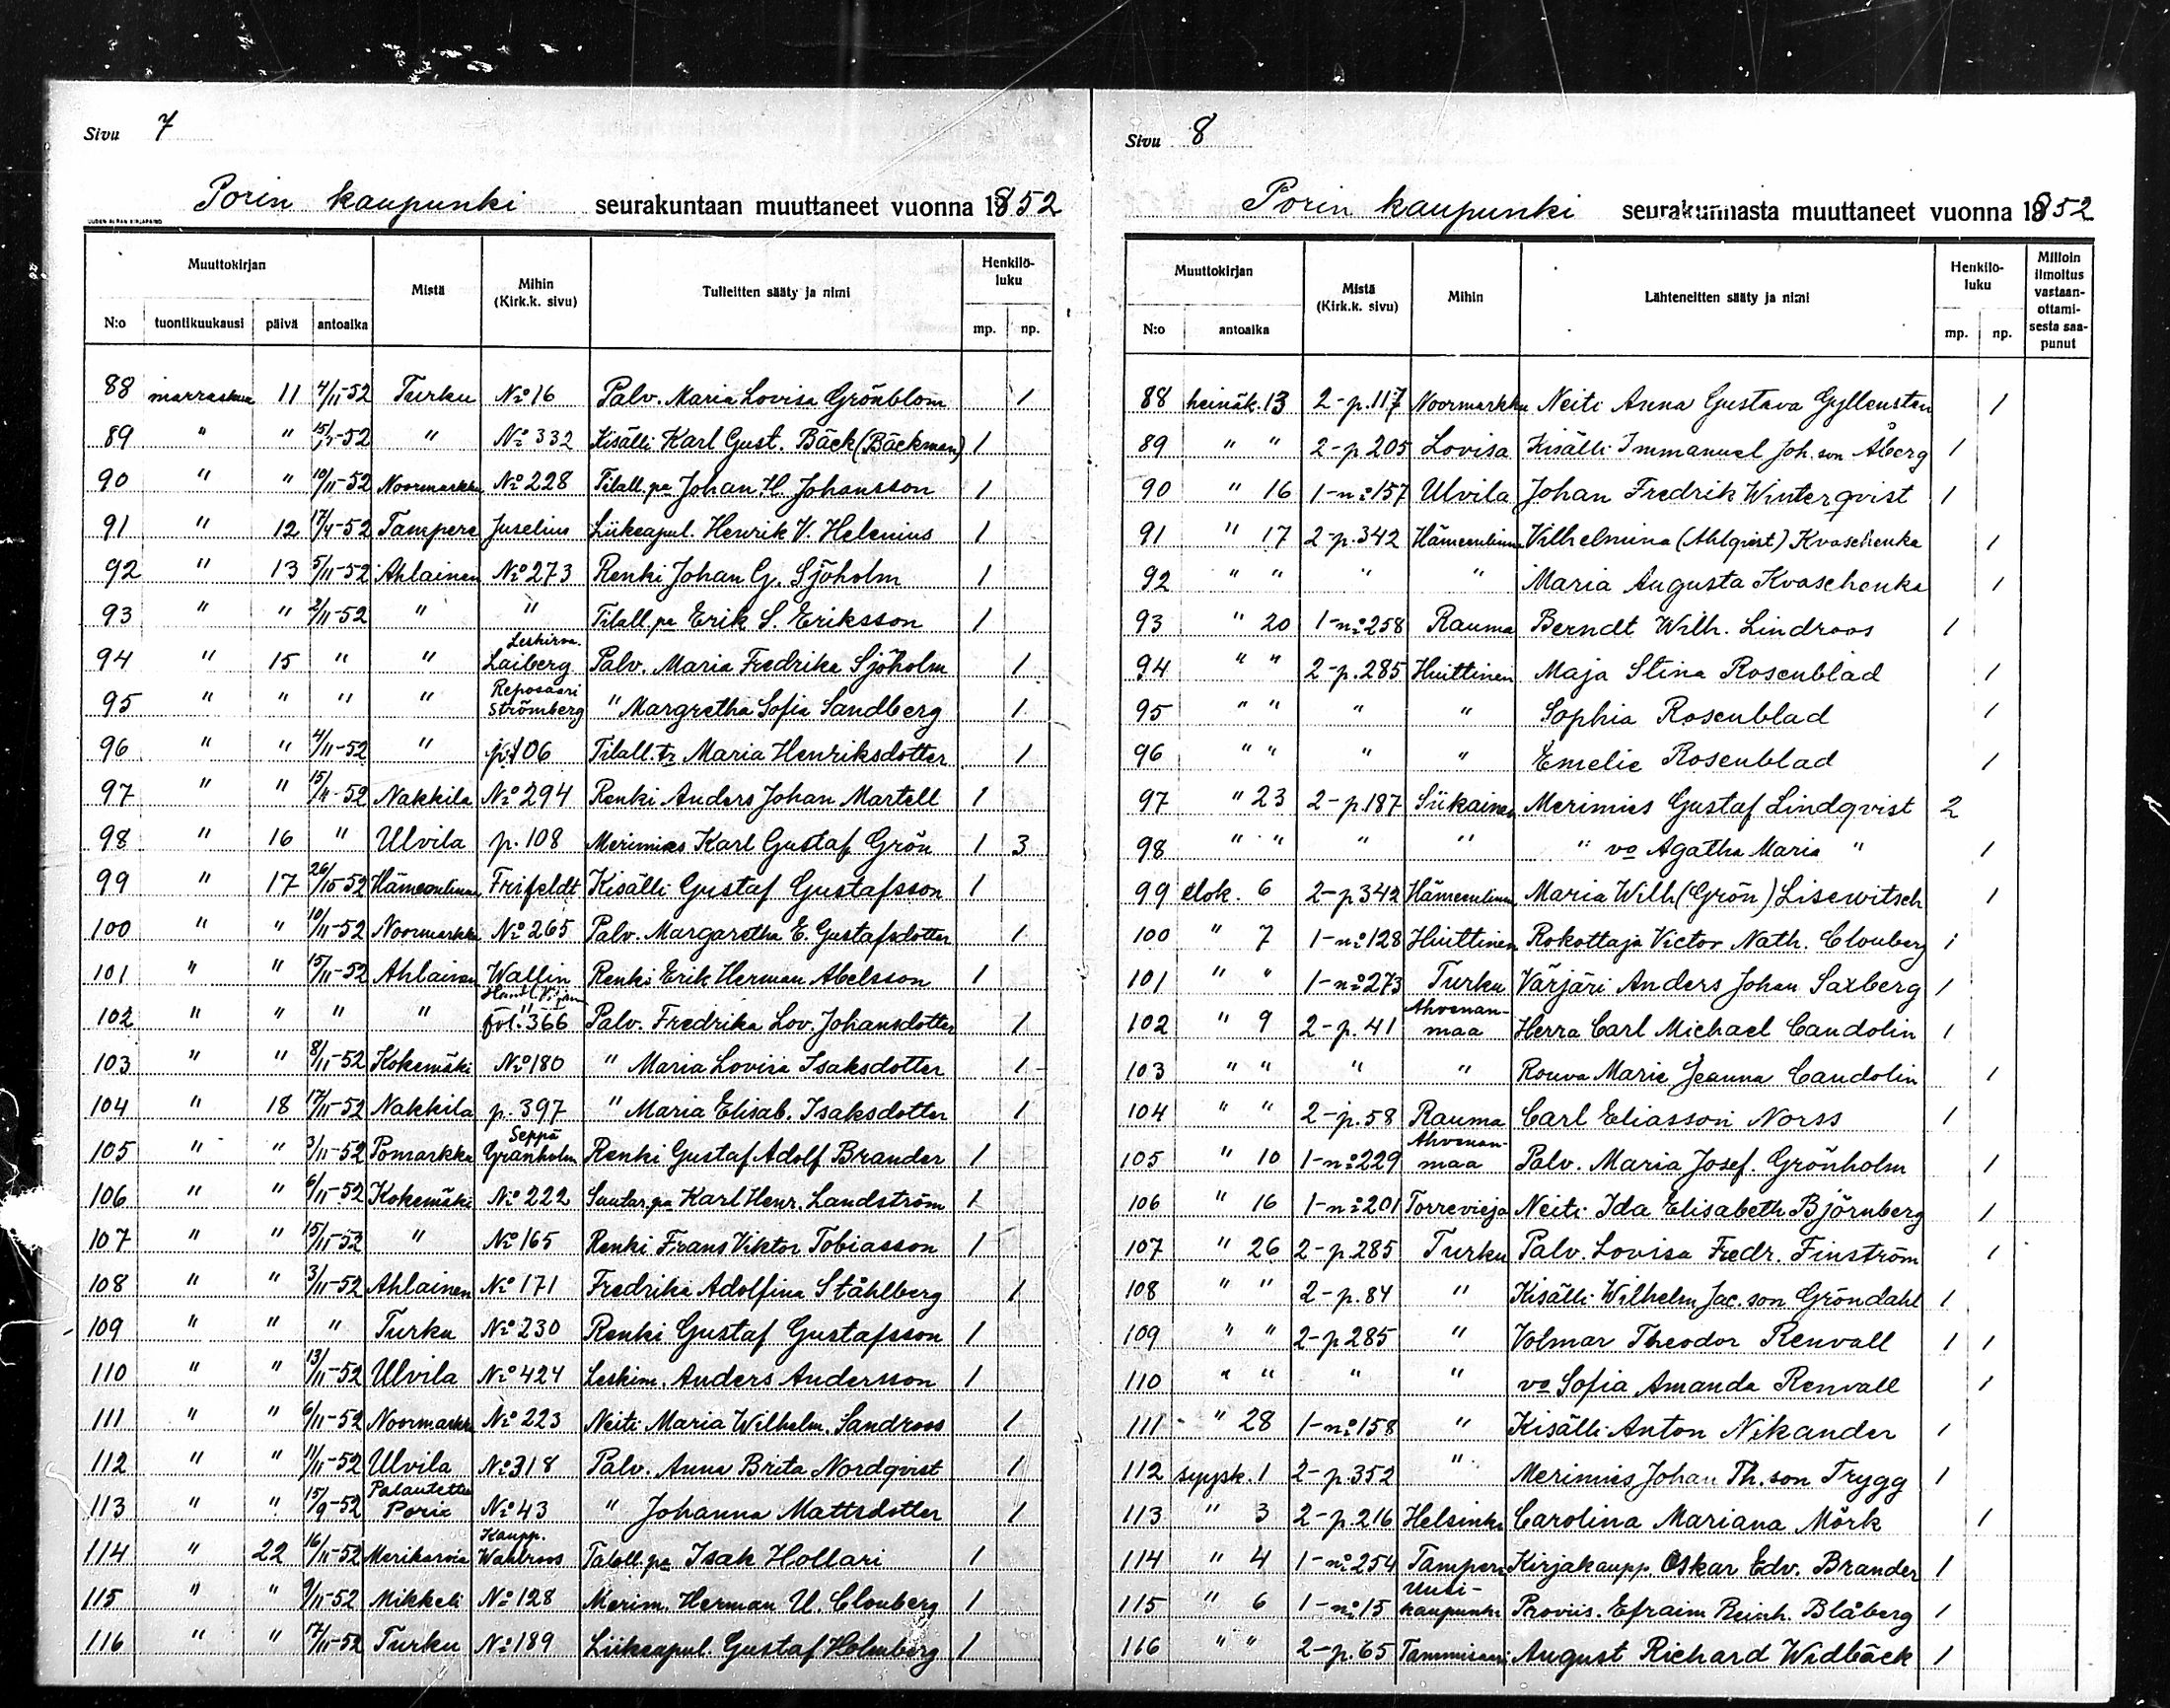 Sivu 7
Porin kaupunki seurakuntaan muuttaneet vuonna 1852
UUDEN AURAN KIRJAPAINO
Muuttokirjan Mistä Mihin (Kirk.k. sivu) Tulleitten sääty ja nimi Henkilö-luku
N:o tuontikuukausi päivä antoaika mp. np.
88 marraskuu 11 4/11-52 Turku No 16 Palv. Maria Lovisa Grönblom 1
89 " " -52 " No 332 Kisälli Karl Gust. Bäck (Bäckman) 1
90 " " 10/11-52 Noormarkku No 228 Tilall. pa Johan H. Johansson 1
91 " 12 17/4-52 Tampere Juselius Liikeapul. Henrik V. Helenius 1
92 " 13 5/11-52 Ahlainen No 273 Renki Johan G. Sjöholm 1
93 " " 2/11-52 " " Tilall. pa Erik S. Eriksson 1
94 " 15 " " Leskirva. Laiberg Palv. Maria Fredrika Sjöholm 1
95 " " " " Reposaari Strömberg " Margretha Sofia Sandberg 1
96 " " 4/11-52 " p. 106 Tilall. tr Maria Henriksdotter 1
97 " " 15/11-52 Nakkila No 294 Renki Anders Johan Martell 1
98 " 16 " Ulvila p. 108 Merimies Karl Gustaf Grön 1 3
99 " 17 26/10-52 Hämeenlinna Frifeldt Kisälli Gustaf Gustafsson 1
100 " " 10/11-52 Noormarkku No 265 Palv. Margaretha E. Gustafsdotter 1
101 " " 15/11-52 Ahlainen Wallin Renki Erik Herman Abelsson 1
102 " " " " fol. 366 Palv. Fredrika Lov. Johansdotter 1
103 " " 8/11-52 Kokemäki No 180 " Maria Lovisa Isaksdotter 1
104 " 18 17/11-52 Nakkila p. 397 " Maria Elisab. Isaksdotter 1
105 " " 3/11-52 Pomarkku Seppä Granholm Renki Gustaf Adolf Brander 1
106 " " 6/11-52 Kokemäki No 222 Suutar. pa Karl Henr. Landström 1
107 " " 15/11-52 " No 165 Renki Frans Viktor Tobiasson 1
108 " " 3/11-52 Ahlainen No 171 Fredrika Adolfina Ståhlberg 1
109 " " " Turku No 230 Renki Gustaf Gustafsson 1
110 " " 13/11-52 Ulvila No 424 Leskim. Anders Andersson 1
111 " " 6/11-52 Noormarkku No 223 Neiti Maria Wilhelm. Sandroos 1
112 " " 11/11-52 Ulvila No 318 Palv. Anna Brita Nordqvist 1
113 " " 15/9-52 Palautettu Poric No 43 " Johanna Mattsdotter 1
114 " 22 16/11-52 Merikarvia Kaupp. Wahlroos Talall. pa Isak Hollari 1
115 " " 9/11-52 Mikkeli No 128 Merim. Herman U. Clouberg 1
116 " " 17/11-52 Turku No 189 Liikeapul. Gustaf Holmberg 1
Sivu 8
Porin kaupunki seurakunnasta muuttaneet vuonna 1852
Muuttokirjan Mistä (Kirk.k. sivu) Mihin Lähteneitten sääty ja nimi Henkilö-luku Milloin ilmoitus vastaan-ottami-sesta saa-punut
N:o antoaika mp. np.
88 heinäk. 13 2-p. 117 Noormarkku Neiti Anna Gustava Gyllenstan 1
89 " " 2-p 205 Lovisa Kisälli Immanuel Joh. son Åberg 1
90 " 16 1-no 157 Ulvila Johan Fredrik Winterqvist 1
91 " 17 2-p. 342 Hämeenlinna Vilhelmina (Ahlqvist) Kvaschenka 1
92 " " " " Maria Augusta Kvaschenka 1
93 " 20 1-no 258 Rauma Berndt Wilh. Lindroos 1
94 " " 2-p. 285 Huittinen Maja Stina Rosenblad 1
95 " " " " Sophia Rosenblad 1
96 " " " " Emelie Rosenblad 1
97 " 23 2-p. 187 Siikainen Merimies Gustaf Lindqvist 2
98 " " " " " vo Agatha Maria " 1
99 elok. 6 2-p 342 Hämeenlinna Maria Wilh (Grön) Lisewitsch 1
100 " 7 1-no 128 Huittinen Rokottaja Victor Nath. Clouberg 1
101 " " 1-no 273 Turku Värjäri Anders Johan Saxberg 1
102 " 9 2-p. 41 Ahvenan-maa Herra Carl Michael Candolin 1
103 " " " " Rouva Marie Jeanna Candolin 1
104 " " 2-p. 58 Rauma Carl Eliasson Norss 1
105 " 10 1-no 229 Ahvenan-maa Palv. Maria Josef. Grönholm 1
106 " 16 1-no 201 Torrevieja Neiti Ida Elisabeth Björnberg 1
107 " 26 2-p. 285 Turku Palv. Lovisa Fredr. Finström 1
108 " " 2-p. 84 " Kisälli Wilhelm Jac. son Gröndahl 1
109 " " 2-p 285 " Volmar Theodor Renvall 1 1
110 " " " " vo Sofia Amanda Renvall 1
111 " 28 1-no 158 " Kisälli Anton Nikander 1
112 syysk. 1 2-p. 352 " Merimies Johan Th. son Trygg 1
113 " 3 2-p. 216 Helsinki Carolina Mariana Mörk 1
114 " 4 1-no 254 Tampere Kirjakaupp. Oskar Edv. Brander 1
115 " 6 1-no 15 Uusi-kaupunki Proviis. Efraim Reinh. Blåberg 1
116 " " 2-p. 65 Tammisaari August Richard Widbäck 1